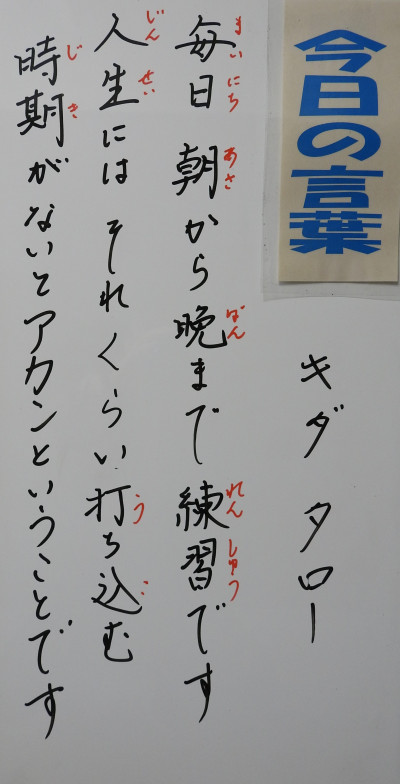 今日の言葉
キダ タロー
毎日 朝から晩まで練習です
まいにち あさ ばん れんしゅう
人生には それくらい打ち込む
じんせい う こ
時期がないとアカンということです
じき